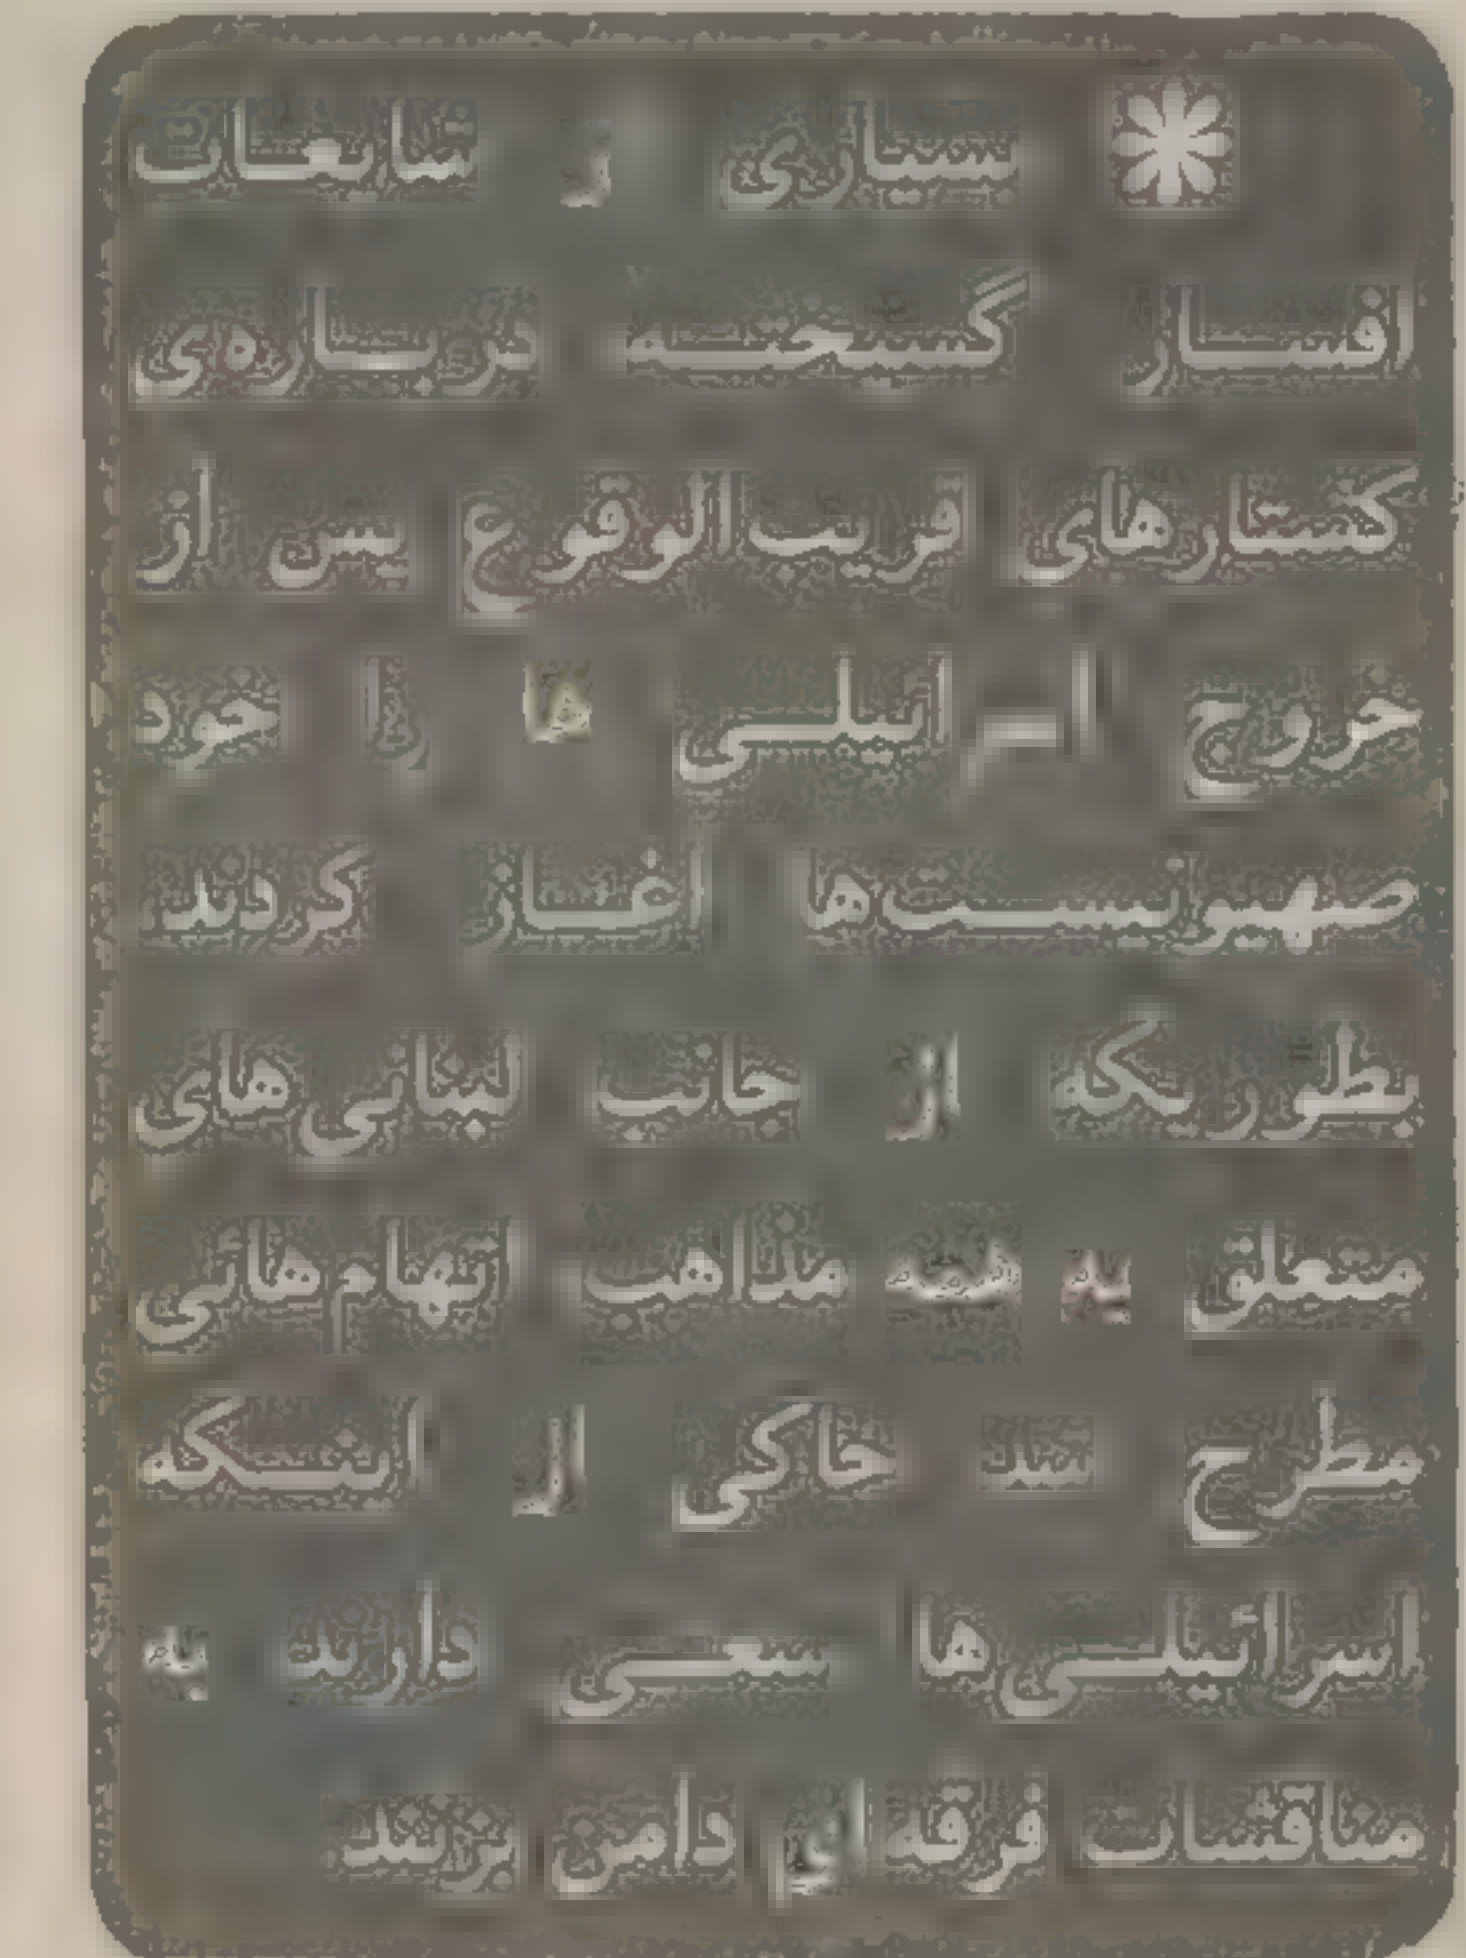 بسیاری از شایعات
افسار گسیخته درباره‌ی
کشتارهای قریب‌الوقوع پس از
خروج اسرائیلی‌ها را خود
صهیونیست‌ها آغاز کردند
بطوریکه از جانب لبنانی‌های
متعلق به همه مذاهب اتهام‌هائی
مطرح شد حاکی از اینکه
اسرائیلی‌ها سعی دارند به
مناقشات فرقه‌ای دامن بزنند